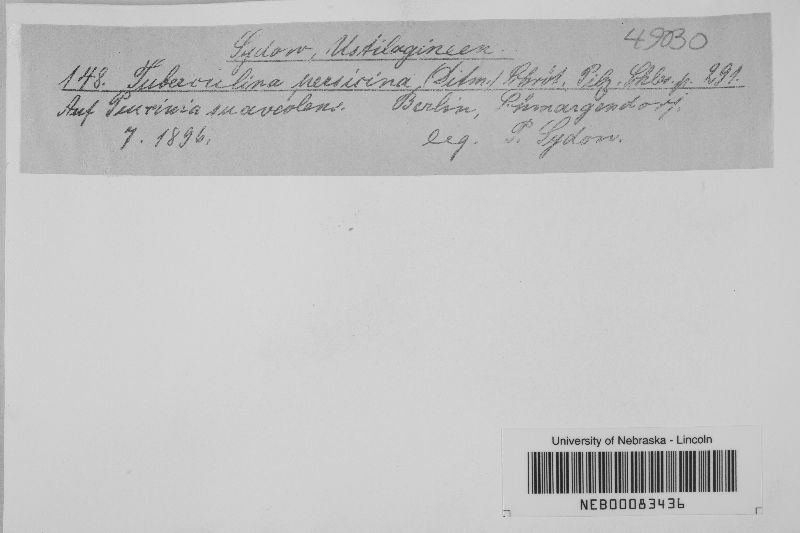 Sydow, Ustilagineen. 49030
148. Tuberculina persicina (Ditm.) Schröt. Pilz. Schles. p. 291.
Auf Puccinia suaveolens. Berlin, Schmargendorf.
7. 1896. leg. P. Sydow.
University of Nebraska - Lincoln
NEB00083436